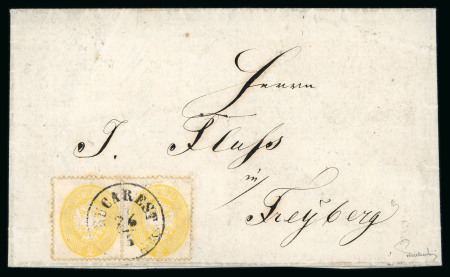 Herrn
J. Fluss
in
Freyberg
BUCAREST
26
5